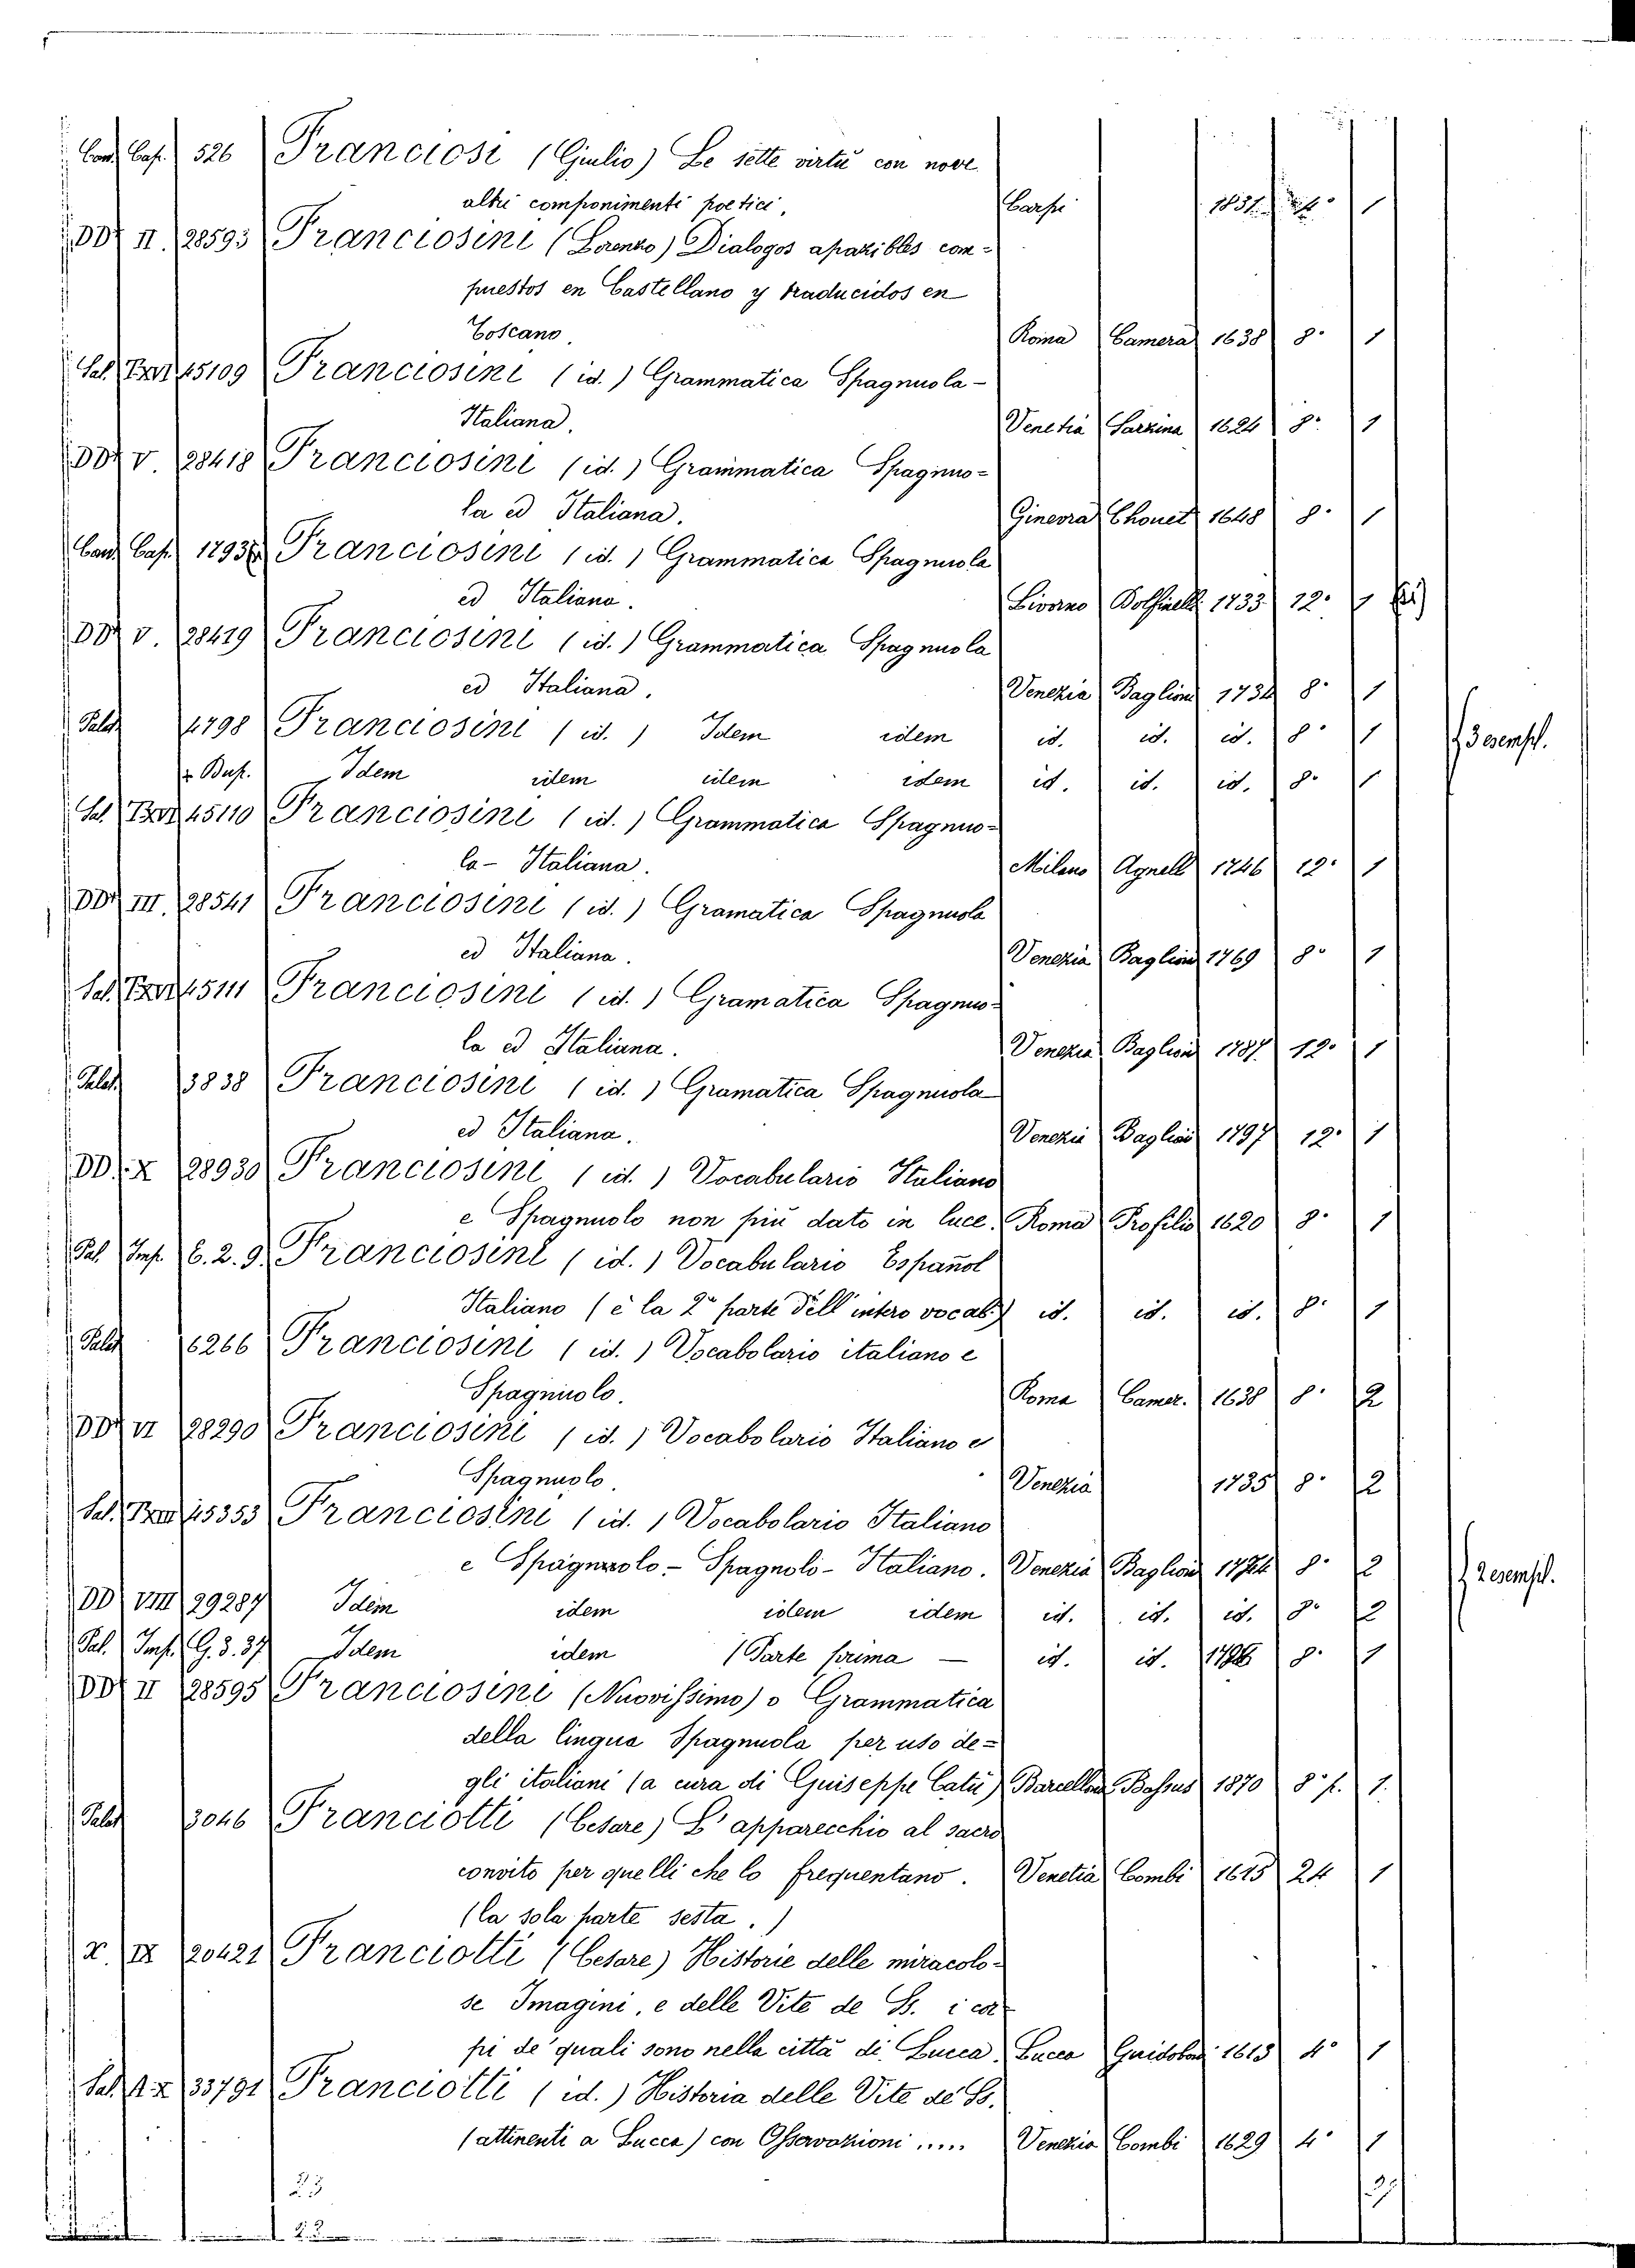 Cap. 526 Franciosi (Giulio) Le sette virtù con nove
altri componimenti poetici. Carpi
II. 28593 Franciosini (Lorenzo) Dialogos apazibles com-
puestos en Castellano y traducidos en
Toscano. Roma Camera 1638 8° 1
45109 Franciosini (id.) Grammatica Spagnuola-
Italiana. Venetia Sarzina 1624 8° 1
V. 28418 Franciosini (id.) Grammatica Spagnuo-
la ed Italiana. Ginevra Chouet 1648 8° 1
Cap. Franciosini (id.) Grammatica Spagnuola
ed Italiana. Livorno 1733 12° 1
V. 28419 Franciosini (id.) Grammatica Spagnuola
ed Italiana. Venezia Baglioni 1734 8° 1
Palat 4798 Franciosini (id.) Idem idem id. id. id. 8° 1 3 esempl.
Idem idem idem idem id. id. id. 8° 1
45110 Franciosini (id.) Grammatica Spagnuo-
la-Italiana. Milano Agnelli 1746 12° 1
III. 28541 Franciosini (id.) Gramatica Spagnuola
ed Italiana. Venezia Baglioni 1769 8° 1
45111 Franciosini (id.) Gramatica Spagnuo-
la ed Italiana. Venezia Baglioni 1787 12° 1
Palat 3838 Franciosini (id.) Gramatica Spagnuola
ed Italiana. Venezia Baglioni 1797 12° 1
X 28930 Franciosini (id.) Vocabulario Italiano
e Spagnuolo non più dato in luce. Roma Profilio 1620 8° 1
Pal. Imp. 6.2.9. Franciosini (id.) Vocabulario Español
Italiano (è la 2ª parte dell'intero vocab.) id. id. id. 8° 1
Palat 6266 Franciosini (id.) Vocabolario italiano e
Spagnuolo. Roma Camer. 1638 8° 2
VI 28290 Franciosini (id.) Vocabolario Italiano e
Spagnuolo. Venezia 1735 8° 2
45353 Franciosini (id.) Vocabolario Italiano
e Spagnuolo - Spagnolo - Italiano. Venezia Baglioni 8° 2 2 esempl.
VIII 29287 Idem idem idem idem id. id. id. 8° 2
Pal. Imp. G.3.37 Idem idem (Parte prima — id. id. 8° 1
II 28595 Franciosini (Nuovissimo) o Grammatica
della lingua Spagnuola per uso de-
gli italiani (a cura di Guiseppe Catu) Barcellona 1870 8° p. 1.
Palat 3046 Franciotti (Cesare) L'apparecchio al sacro
convito per quelli che lo frequentano. Venetia Combi 1615 24 1
(la sola parte sesta.)
X. IX 20421 Franciotti (Cesare) Historie delle miracolo-
se Imagini, e delle Vite de SS. i cor-
pi de' quali sono nella città di Lucca. Lucca 1613 4° 1
33791 Franciotti (id.) Historia delle Vite de' SS.
(attinenti a Lucca) con Osservazioni ..... Venezia Combi 1629 4° 1
23